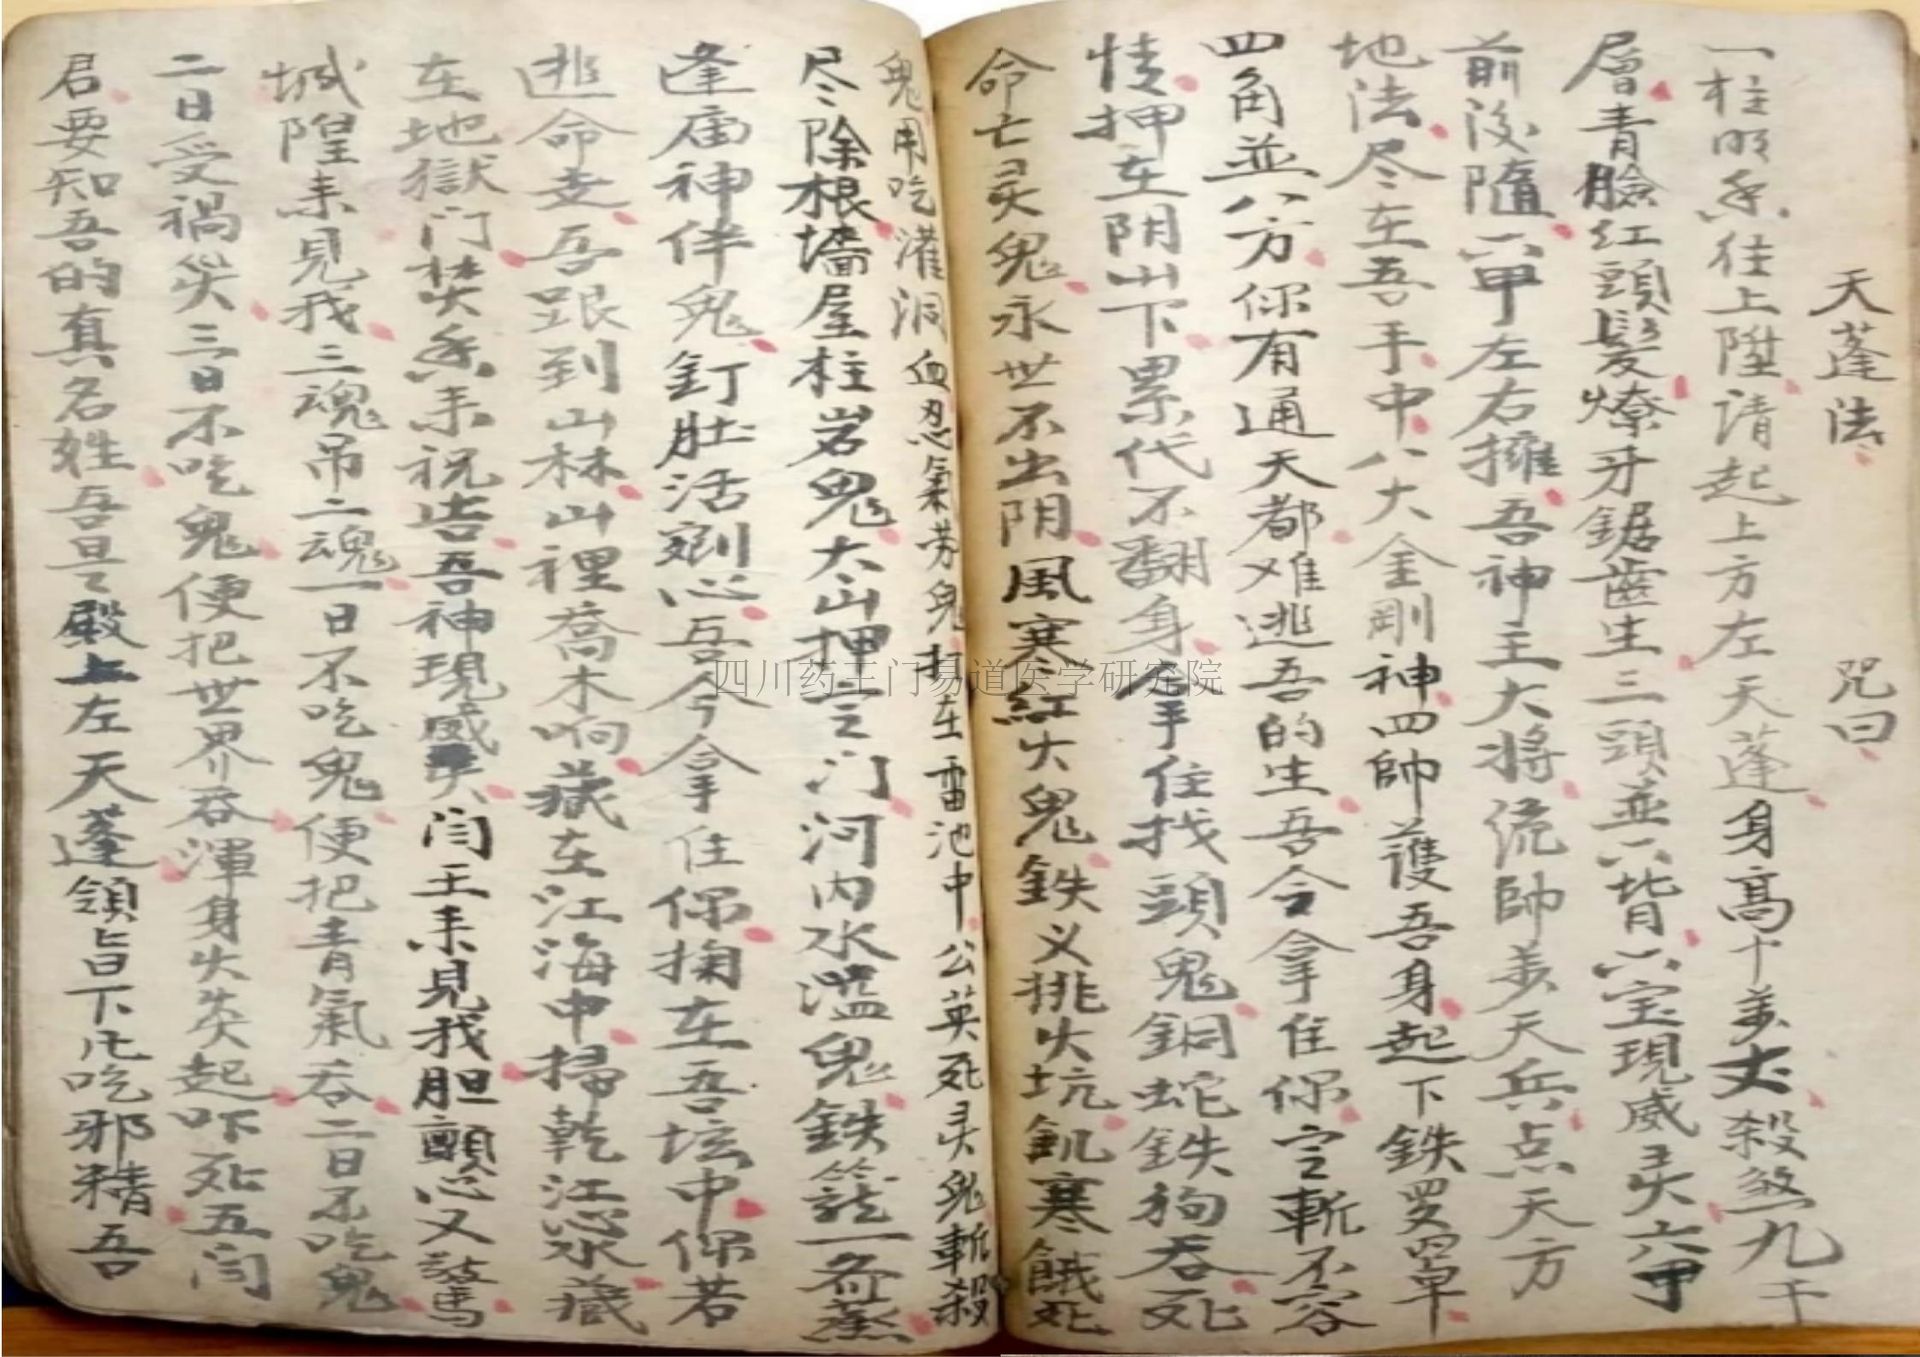 天蓬法 咒曰
一柱明香往上陞请起上方左天蓬身高十萬丈殺煞九千
層青臉红頭髮燎牙鋸齒生三頭並六背六宝現威灵六甲
前後隨六甲左右擁吾神主大将统帥萬天兵点天方
地法尽在吾手中八大金剛神四帥護吾身起下鉄罗罩
四角並八方你有通天都难逃吾的生吾今拿住你定斬不容
情押在阴山下累代不翻身拿住找頭鬼銅蛇鉄狗吞死
命亡灵鬼永世不出阴風寒紅火鬼鉄义挑火坑飢寒餓死
鬼用吃灌洞血忍氣劳鬼打在雷池中公英死灵鬼斬殺
尽除根墻屋柱岩鬼大山押之门河内水溫鬼鉄籠一斎蒸
逢庙神伴鬼釘肚活剜心吾今拿住你掬在吾坛中你若
逃命走吾跟到山林山裡喬木响藏在江海中掃乾江水藏
在地獄门焚香来祝告吾神現威灵闫王来見我胆顫心又驚
城隍来見我三魂吊二魂一日不吃鬼便把青氣吞二日不吃鬼
二日受禍災三日不吃鬼便把世界吞渾身火炎起吓死五闫
君要知吾的真名姓吾是殿上左天蓬領旨下凡吃邪精吾
四川药王门易道医学研究院